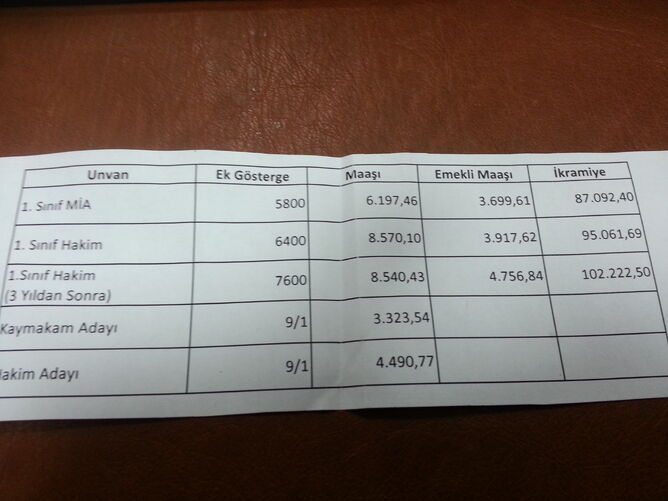 Unvan Ek Gösterge Maaşı Emekli Maaşı İkramiye
1. Sınıf MİA 5800 6.197,46 3.699,61 87.092,40
1. Sınıf Hakim 6400 8.570,10 3.917,62 95.061,69
1.Sınıf Hakim
(3 Yıldan Sonra) 7600 8.540,43 4.756,84 102.222,50
Kaymakam Adayı 9/1 3.323,54
akim Adayı 9/1 4.490,77